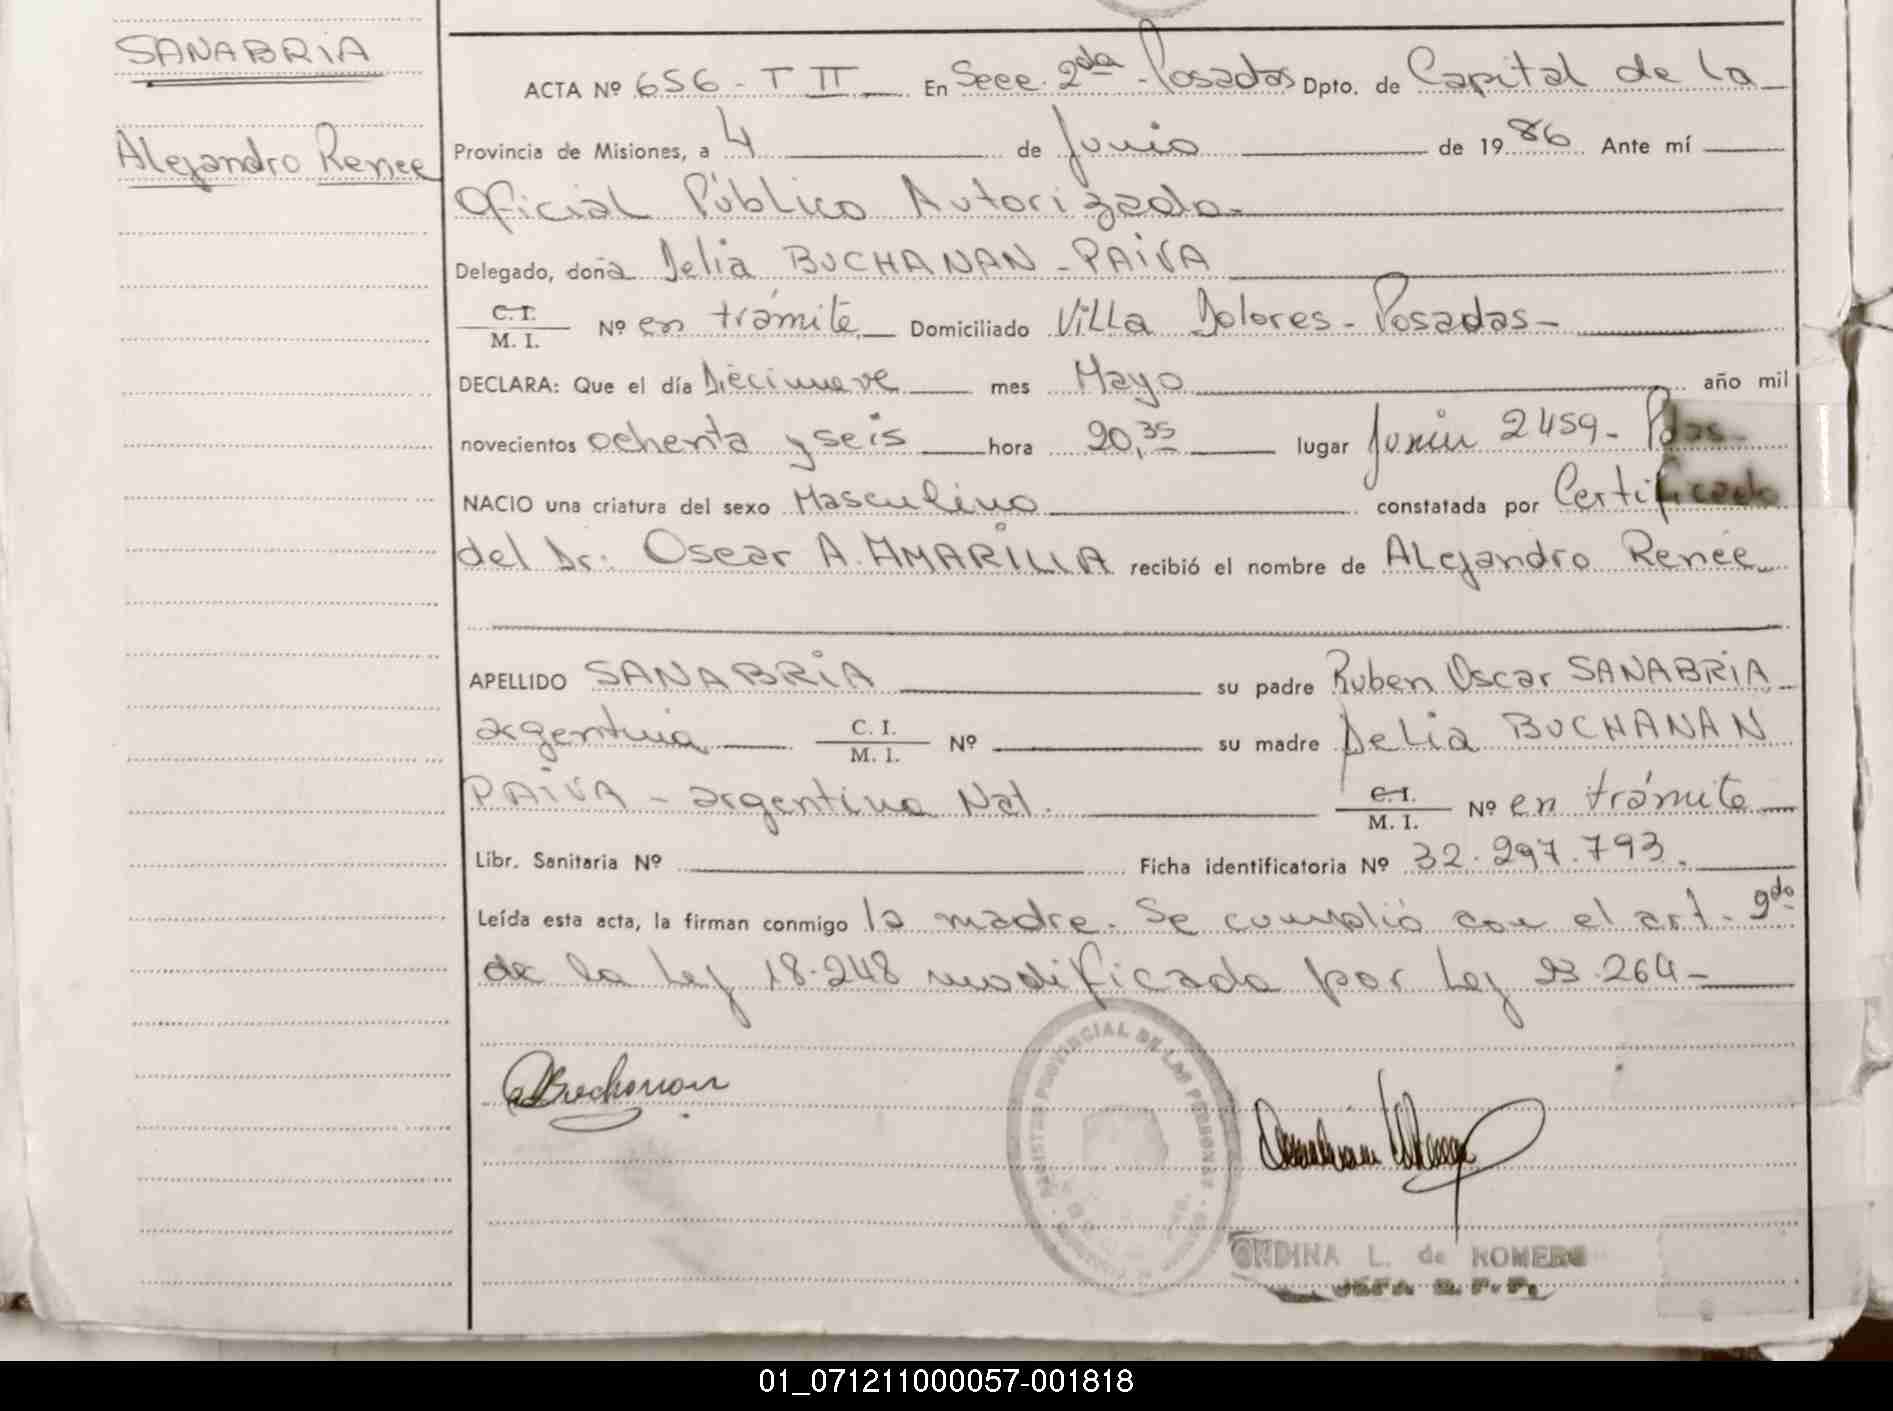 SANABRIA
Alejandro Renee
ACTA Nº 656 - T II En Secc. 2da - Posadas Dpto. de Capital de la
Provincia de Misiones, a 4 de Junio de 1986 Ante mí
Oficial Público Autorizado.
Delegado, doña Delia BUCHANAN - PAIVA
C.I. / M. I. Nº en trámite Domiciliado Villa Dolores - Posadas -
DECLARA: Que el día Diecinueve mes Mayo año mil
novecientos ochenta y seis hora 20,35 lugar Junin 2459 - Pdas -
NACIO una criatura del sexo Masculino constatada por Certificado
del Dr. Oscar A. AMARILLA recibió el nombre de Alejandro Renée
APELLIDO SANABRIA su padre Ruben Oscar SANABRIA
argentina C. I. / M. I. Nº su madre Delia BUCHANAN
PAIVA - argentina Nat. C.I. / M. I. Nº en trámite
Libr. Sanitaria Nº Ficha identificatoria Nº 32.297.793.
Leída esta acta, la firman conmigo la madre. Se cumplió con el art. 2do
de la Ley 18.248 modificado por Ley 23.264 -
Buchanan
REGISTRO PROVINCIAL DE LAS PERSONAS
ONDINA L. de ROMERO
JEFA
01_071211000057-001818